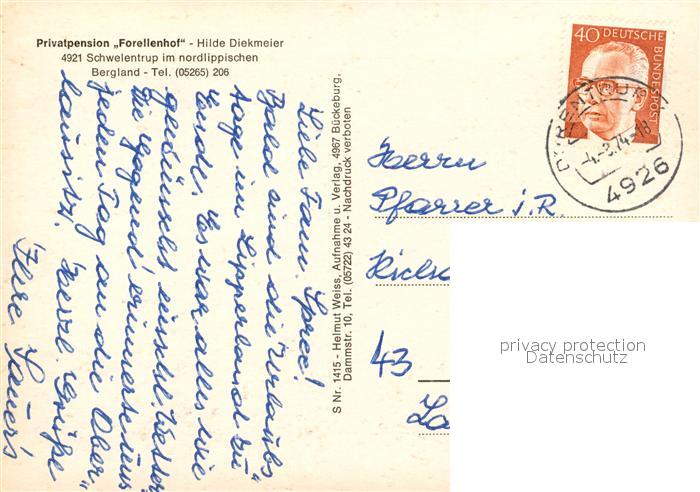 Privatpension „Forellenhof“ - Hilde Diekmeier
4921 Schwelentrup im nordlippischen
Bergland - Tel. (05265) 206
Liebe Fam. Spree!
Bald sind die Urlaubs
tage im Lipperland zu
Ende. Es war alles wie
gewünscht einschl. Wetter
Die Gegend erinnerte uns
jeden Tag an die Ober-
lausitz. Herzl. Grüße
Ihre Sauers
S Nr. 1415 - Helmut Weiss, Aufnahme u. Verlag, 4967 Bückeburg,
Dammstr. 10, Tel. (05722) 43 24 - Nachdruck verboten
40 DEUTSCHE BUNDESPOST
4926
-4.-8.74-18
Herrn
Pfarrer i. R.
43
privacy protection
Datenschutz